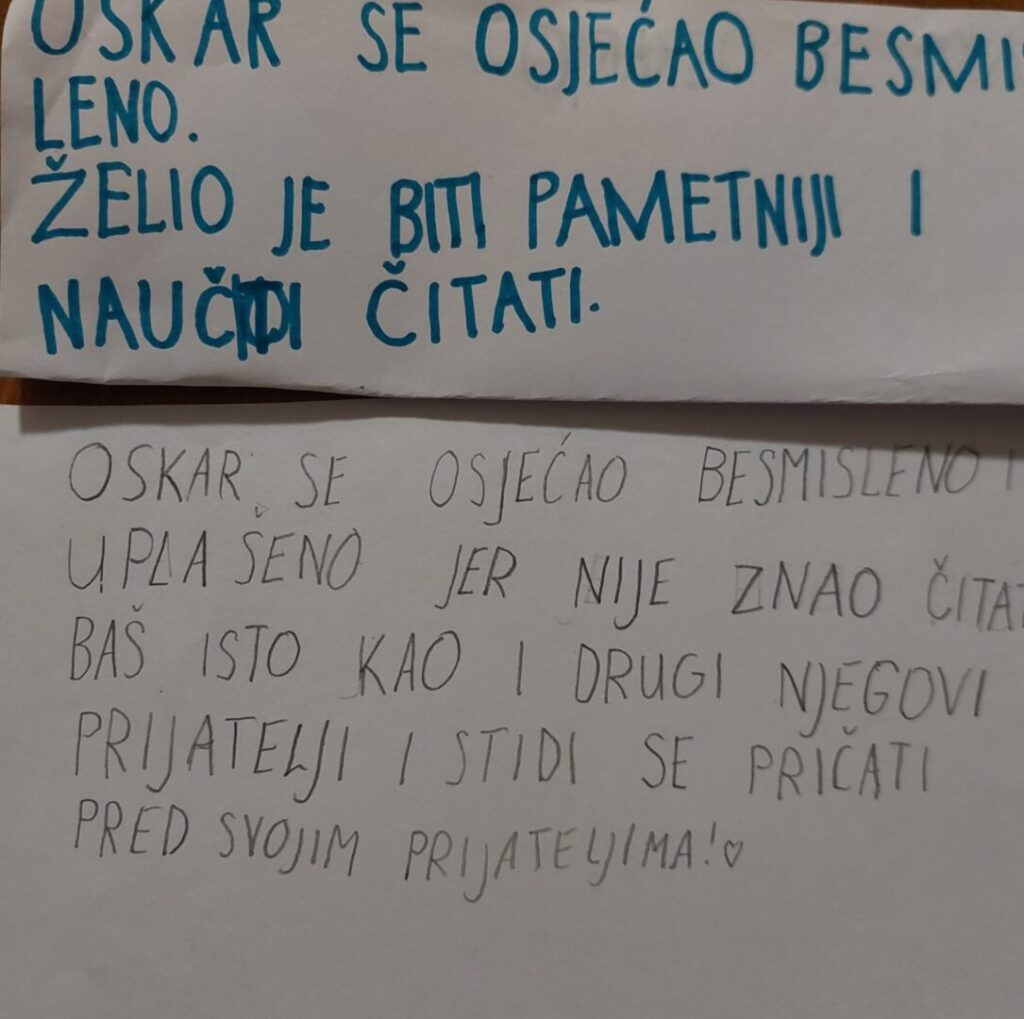 OSKAR SE OSJEĆAO BESMIS
LENO.
ŽELIO JE BITI PAMETNIJI I
ČITATI.
OSKAR SE OSJEĆAO BESMISLENO I
UPLAŠENO JER NIJE ZNAO ČITAT
BAŠ ISTO KAO I DRUGI NJEGOVI
PRIJATELJI I STIDI SE PRIČATI
PRED SVOJIM PRIJATELJIMA!♡